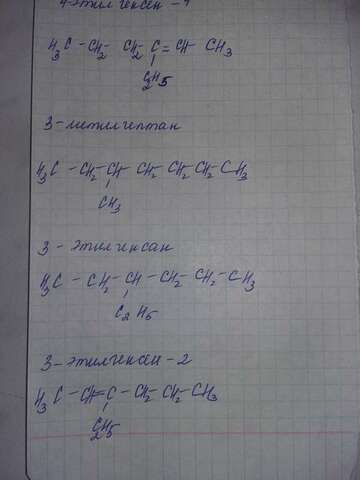 4-этилгексен-4
H3C - CH2 CH2 C = CH CH3
C2H5
3-метилгептан
H3C - CH2 - CH - CH2 - CH2 - CH2 - CH3
CH3
3 - этилгексан
H3C - CH2 - CH - CH2 - CH2 - CH3
C2H5
3-этилгексен-2
H3C - CH = C - CH2 - CH2 - CH3
C2H5